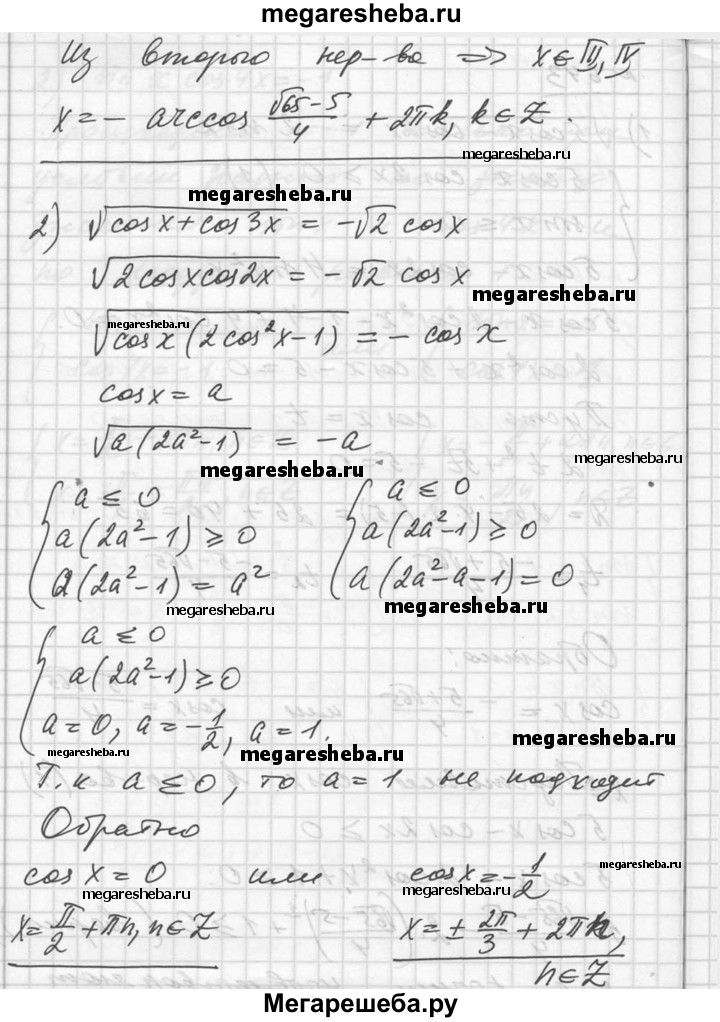 megaresheba.ru
Из второго нер-ва => x∈III, IV
x = - arccos (√65-5)/4 + 2πk, k∈Z.
megaresheba.ru
megaresheba.ru
2) √(cos x + cos 3x) = -√2 cos x
√(2cosxcos2x) = -√2 cos x
megaresheba.ru
megaresheba.ru
√(cos x (2cos²x-1)) = - cos x
cosx = a
√(a(2a²-1)) = -a
megaresheba.ru
megaresheba.ru
{ a ≤ 0 { a ≤ 0
a(2a²-1) ≥ 0 a(2a²-1) ≥ 0
a(2a²-1) = a² a(2a²-a-1) = 0
megaresheba.ru megaresheba.ru
{ a ≤ 0
a(2a²-1) ≥ 0
a = 0, a = -1/2, a = 1.
megaresheba.ru megaresheba.ru megaresheba.ru
Т.к a ≤ 0, то a = 1 не подходит
Обратно
cos x = 0 или cosx = -1/2
megaresheba.ru megaresheba.ru megaresheba.ru
x = π/2 + πn, n∈Z x = ± 2π/3 + 2πn,
n∈Z
Мегарешеба.ру